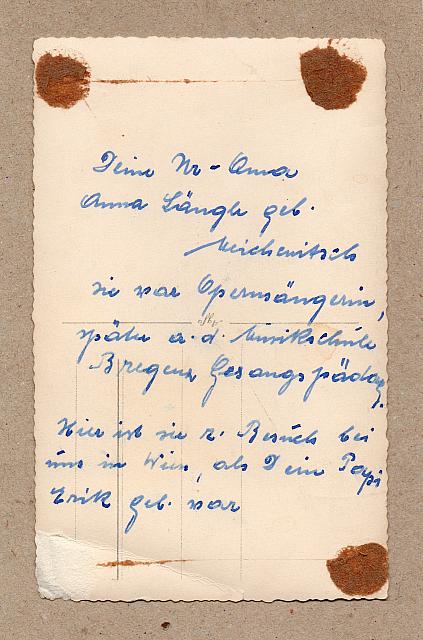 Deine Ur-Oma
Anna Längle geb.
Meichenitsch
sie war Opernsängerin,
später a.d. Musikschule
Bregenz Gesangspädag.
Hier ist sie z. Besuch bei
uns in Wien, als Dein Papi
Erik geb. war